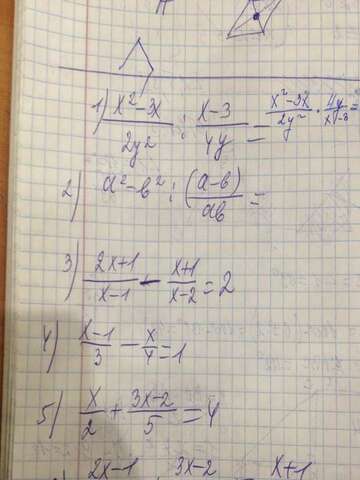 1) x²-3x / 2y² : x-3 / 4y = x²-3x / 2y² · 4y / x-3 =
2) a²-b² : (a-b) / ab =
3) 2x+1 / x-1 - x+1 / x-2 = 2
4) x-1 / 3 - x / 4 = 1
5) x / 2 + 3x-2 / 5 = 4
2x-1 3x-2 x+1